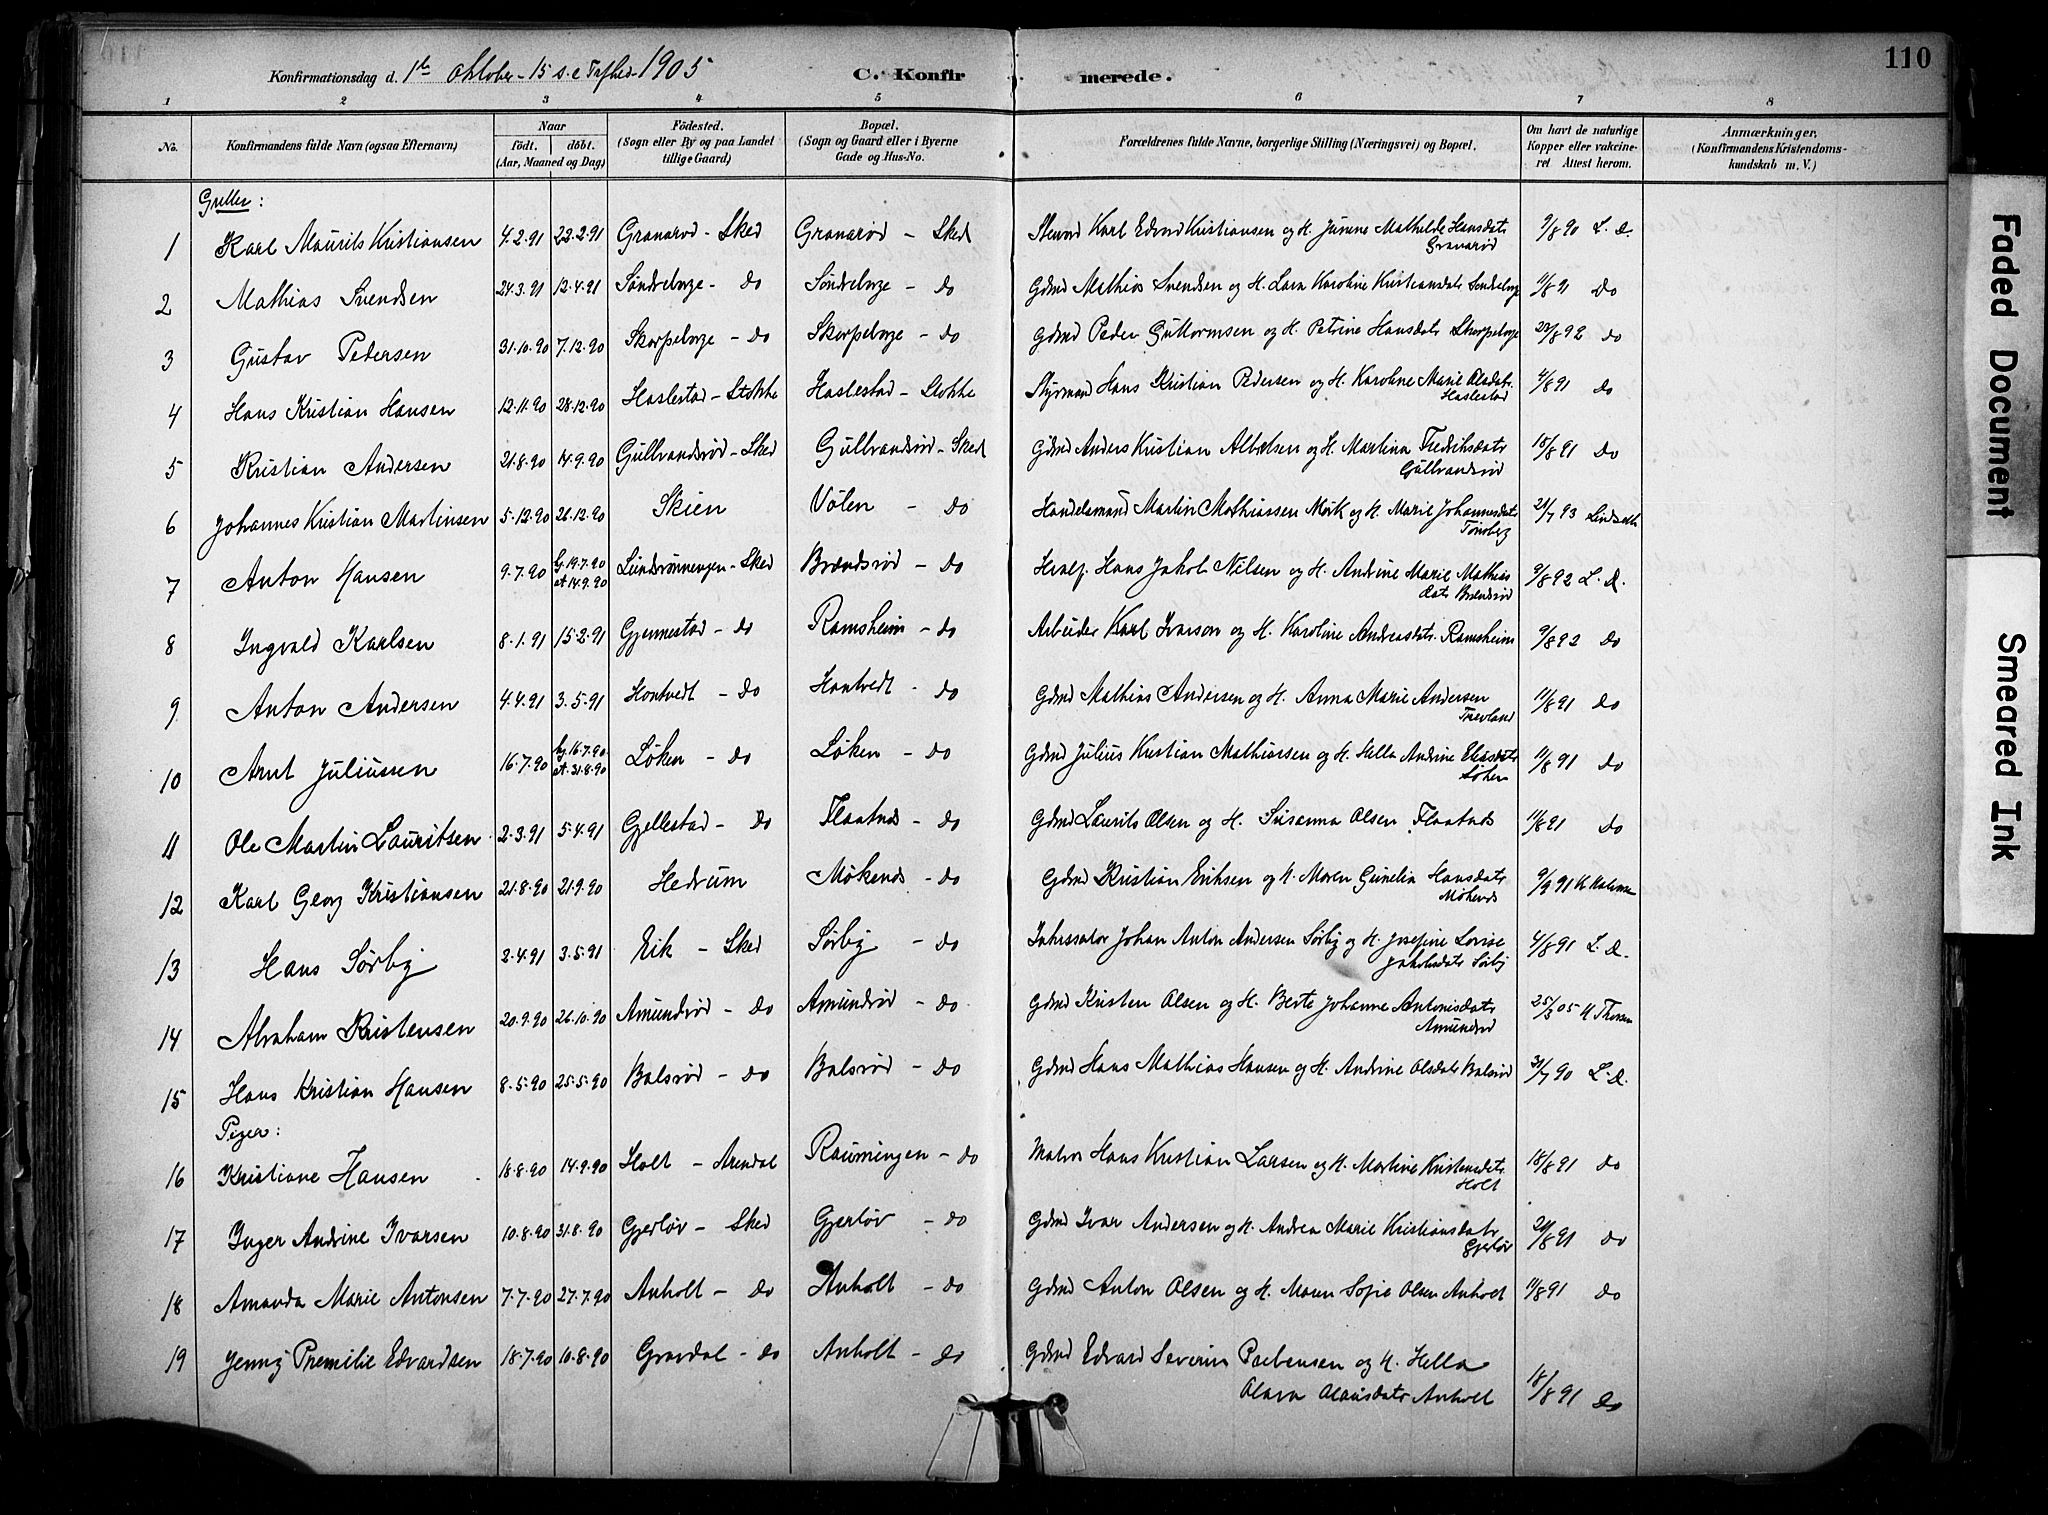 110
Konfirmationsdag d. 1ste Oktober - 15 s. e Trefhed. 1905 C. Konfirmerede.
1 2 3 4 5 6 7 8
No. Konfirmandens fulde Navn (ogsaa Efternavn) Naar födt. döbt. (Aar, Maaned og Dag) Födested. (Sogn eller By og paa Landet tillige Gaard) Bopæl. (Sogn og Gaard eller i Byerne Gade og Hus-No. Forældrenes fulde Navne, borgerlige Stilling (Næringsvei) og Bopæl. Om havt de naturlige Kopper eller vakcineret Attest herom. Anmærkninger. (Konfirmandens Kristendomskundskab m. V.)
Gutter:
1 Karl Maurits Kristiansen 4.2.91 22.2.91 Granarød - Sked Granarød - Sked Steward Karl Edvard Kristiansen og H. Jumine Mathilde Hansdatr Granarød 9/8 90 L. D.
2 Mathias Svendsen 24.3.91 12.4.91 Søndreborge - do Søndreborge - do Gdmd Mathias Svendsen og H. Lava Karoline Kristiansdatr Søndreborge 11/8 91 do
3 Gustav Pedersen 31.10.90 7.12.90 Skorpeborge - do Skorpeborge - do Gdmd Peder Guttormsen og H. Petrine Hansdatr Skorpeborge 22/8 92 do
4 Hans Kristian Hansen 12.11.90 28.12.90 Haslestad - Stokke Haslestad - Stokke Styrmand Hans Kristian Pedersen og H. Karoline Marie Olsdatr. Haslestad 4/8 91 do
5 Kristian Andersen 21.8.90 14.9.90 Gulbrandsrød - Sked Gulbrandsrød - Sked Gdmd Anders Kristian Albretsen og H. Martina Fredriksdatr Gulbrandsrød 18/8 91 do
6 Johannes Kristian Martinsen 5.12.90 26.12.90 Skien Vølen - do Handelsmand Martin Mathiassen Mørk og H. Marie Johannesdatr Tønsberg 21/7 93 Lindseth
7 Anton Hansen 9.7.90 hj. 19.7.90 st. 14.9.90 Lundsrønningen - Sked Brændsrød - do Hans Jakob Nilsen og H. Andrine Marie Mathiasdatr Brændsrød 9/8 92 L. D.
8 Ingvald Karlsen 8.1.91 15.2.91 Gjennestad - do Ramsheim - do Arbeider Karl Ivarson og H. Karoline Andreasdatr. Ramsheim 9/8 92 do
9 Anton Andersen 4.4.91 3.5.91 Hontvedt - do Hontvedt - do Gdmd Mathias Andersen og H. Anna Marie Andersen Trevland 11/8 91 do
10 Arnt Juliussen 16.7.90 hj. 16.7.90 st. 31.8.90 Løken - do Løken - do Gdmd Julius Kristian Mathiassen og H. Hella Andrine Eliasdatr Løken 11/8 91 do
11 Ole Martin Lauritsen 2.3.91 5.4.91 Gjellestad - do Flaatnes - do Gdmd Laurits Olsen og H. Susanna Olsen Flaatnes 11/8 91 do
12 Karl Georg Kristiansen 21.8.90 21.9.90 Hedrum Møkenes - do Gdmd Kristian Eriksen og H. Maren Gunelia Hansdatr Møkenes 9/9 91
13 Hans Sørby 2.4.91 3.5.91 Eik - Sked Sørby - do Johan Anton Andersen Sørby og H. Josefine Lovise Jakobsdatr Sørby 4/8 91 L. D.
14 Abraham Kristensen 20.9.90 26.10.90 Amundrød - do Amundrød - do Gdmd Kristen Olsen og H. Berte Johanne Antonisdatr Amundrød 25/3 05
15 Hans Kristian Hansen 8.5.90 25.5.90 Balsrød - do Balsrød - do Gdmd Hans Mathias Hansen og H. Andrine Olsdatr Balsrød 31/7 90 L. D.
Piger:
16 Kristiane Hansen 18.8.90 14.9.90 Holt - Arendal Raumingen - do Matros Hans Kristian Larsen og H. Martine Kristensdatr. Holt 18/8 91 do
17 Inger Andrine Ivarsen 10.8.90 31.8.90 Gjerløv - Sked Gjerløv - do Gdmd Ivar Andersen og H. Andrea Marie Kristiansdatr Gjerløv 20/8 91 do
18 Amanda Marie Antonsen 7.7.90 27.7.90 Anholt - do Anholt - do Gdmd Anton Olsen og H. Maren Sofie Olsen Anholt 11/8 91 do
19 Jenny Premilie Edvardsen 18.7.90 10.8.90 Gravdal - do Anholt - do Gdmd Edvard Severin Prebensen og H. Hella
Olava Olausdatr Anholt 18/8 91 do
Faded Document
Smeared Ink